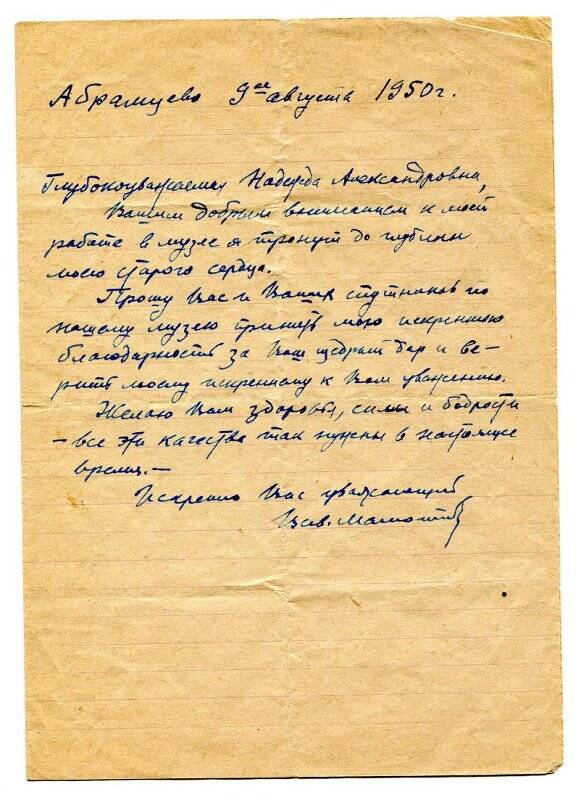 Абрамцево 9ое августа 1950г.
Глубокоуважаемая Надежда Александровна,
Вашим добрым вниманием к моей
работе в музее я тронут до глубины
моего старого сердца.
Прошу Вас и Ваших спутников по
нашему музею принять мою искреннюю
благодарность за Ваш щедрый дар и ве-
рить моему искреннему к Вам уважению.
Желаю Вам здоровья, силы и бодрости
– все эти качества так нужны в настоящее
время.–
Искренно Вас уважающий
Всев. Мамонтов